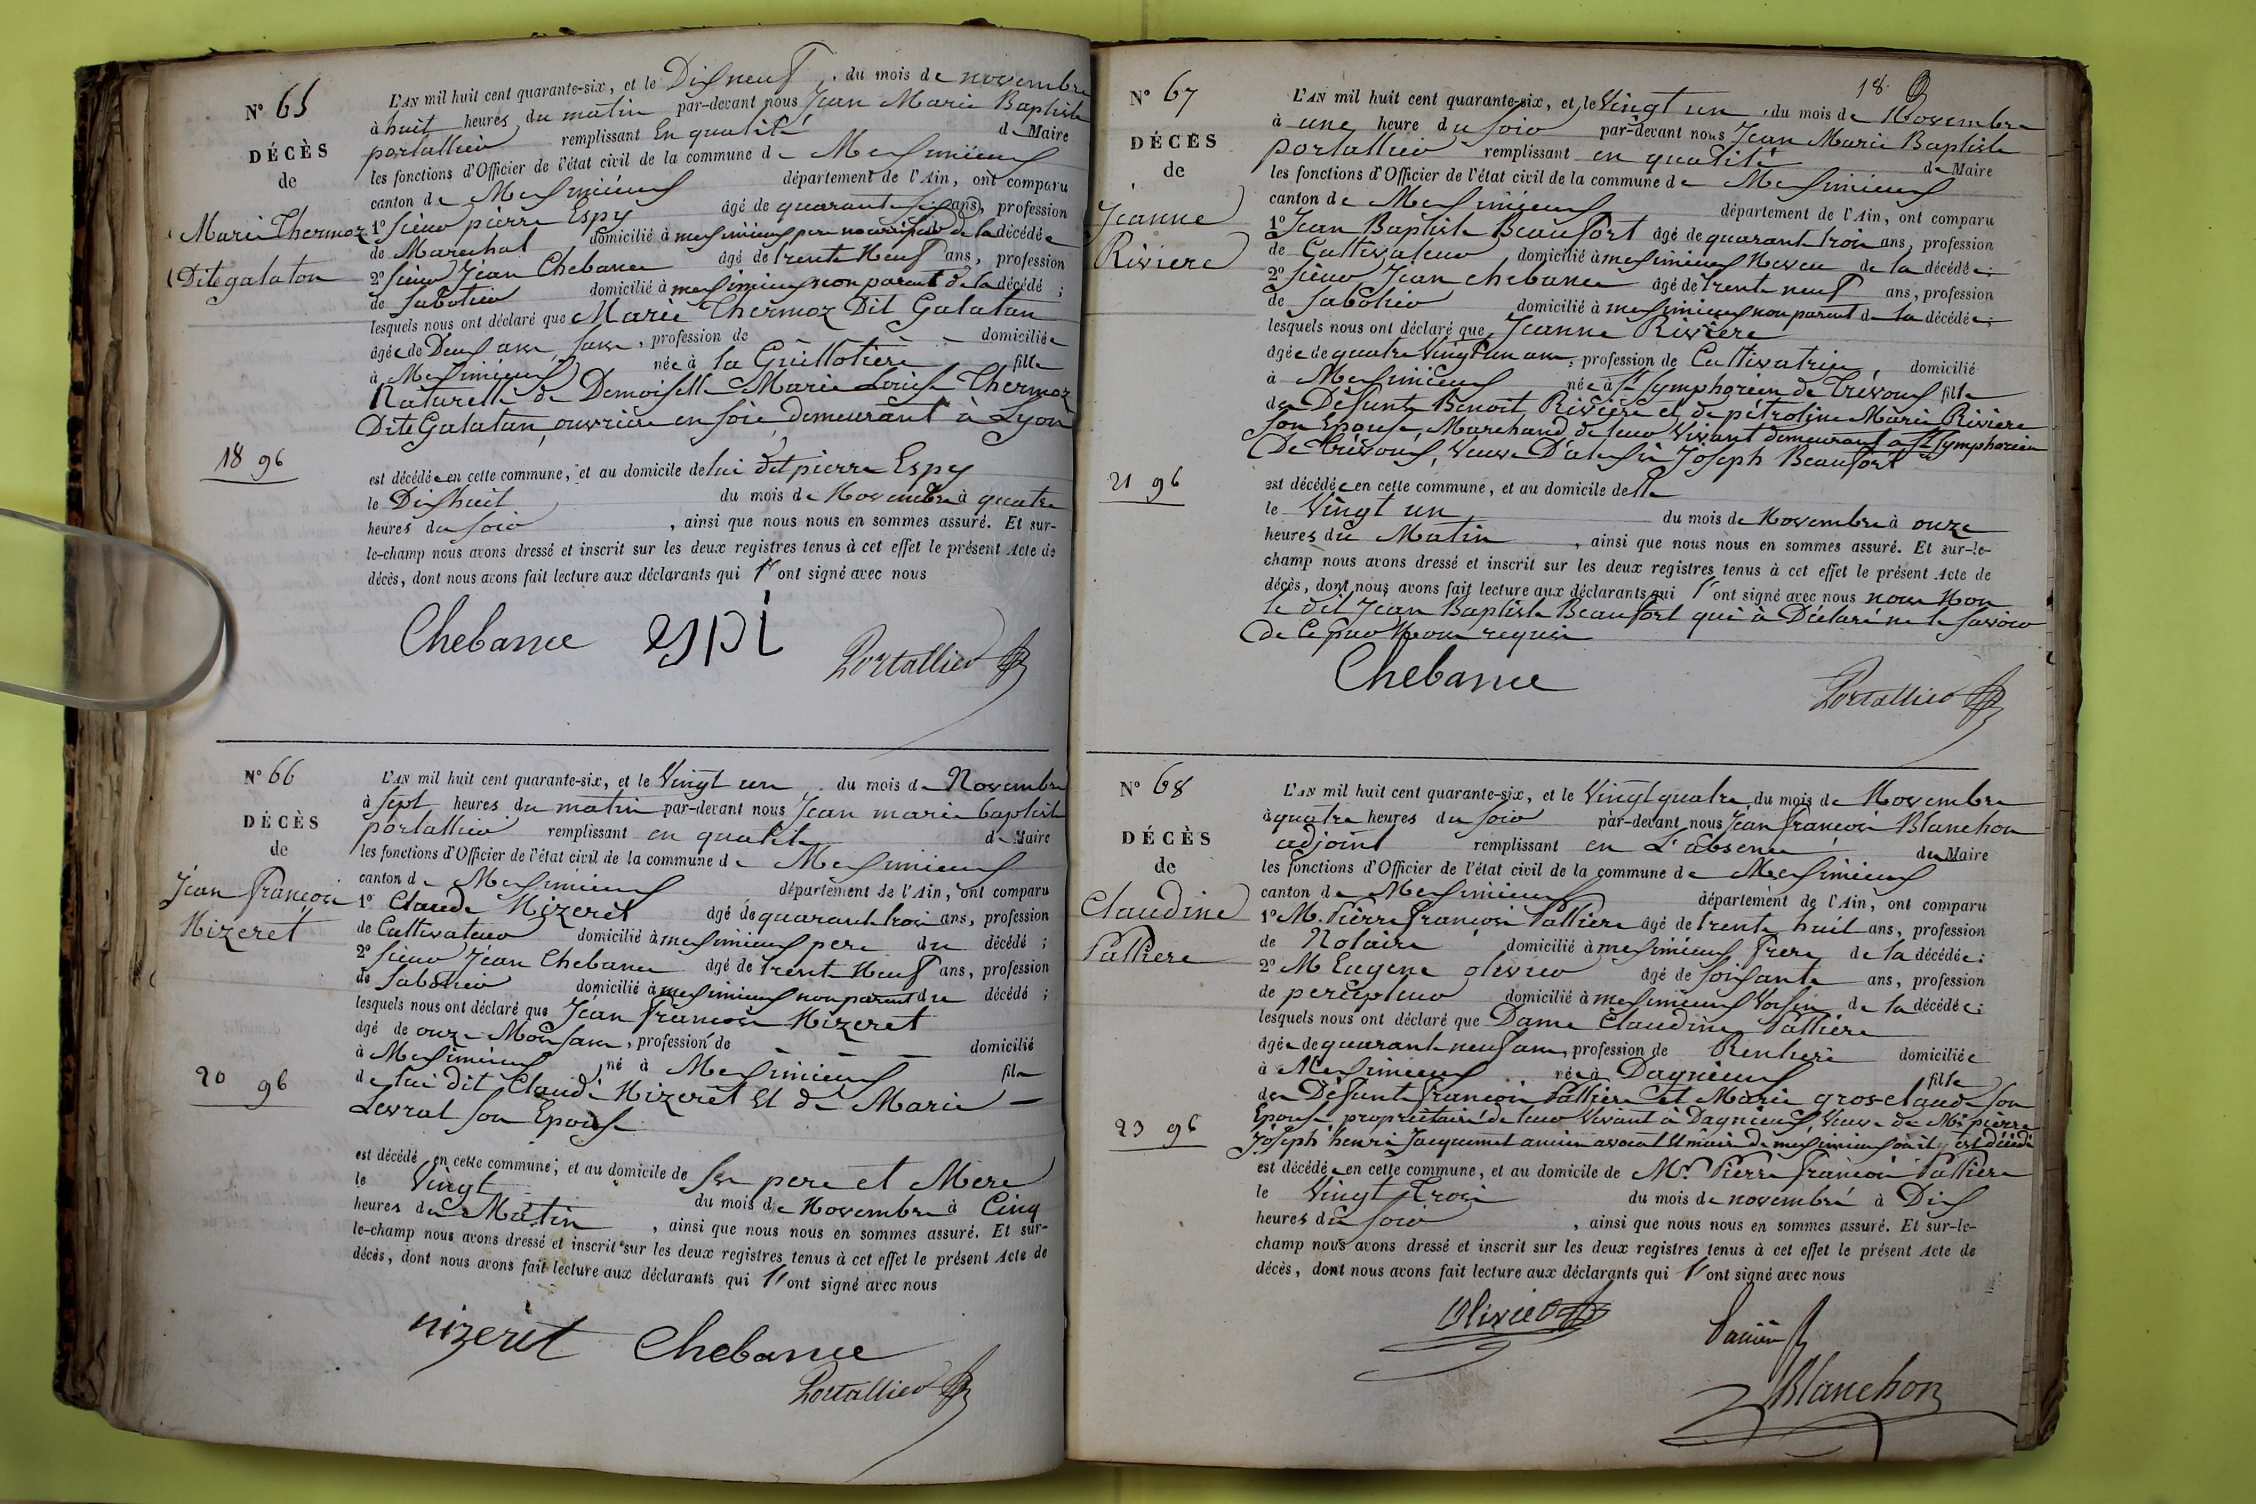 N° 65
DÉCÈS
de
Marie Thermoz
Dite galatan
18 96
L'AN mil huit cent quarante-six, et le Dixneuf, du mois de novembre
à huit heures du matin par-devant nous Jean Marie Baptiste
portallier remplissant En qualité de Maire
les fonctions d'Officier de l'état civil de la commune de Meximieux
canton de Meximieux département de l'Ain, ont comparu
1° sieur pierre Espy âgé de quarante six ans, profession
de Marechal domicilié à meximieux pere nourricier de la décédée
2° sieur Jean Chebance âgé de trente neuf ans, profession
de sabotier domicilié à meximieux non parent de la décédé ;
lesquels nous ont déclaré que Marie Thermoz Dit Galatan
âgée de Deux ans, sans, profession de domiciliée
à Meximieux née à la Guillotière fille
Naturelle de Demoiselle Marie Louise Thermoz
Dite Galatan, ouvrière en soie, demeurant à Lyon
est décédée en cette commune, et au domicile de lui dit pierre Espy
le Dixhuit du mois de Novembre à quatre
heures du soir, ainsi que nous nous en sommes assuré. Et sur-
le-champ nous avons dressé et inscrit sur les deux registres tenus à cet effet le présent Acte de
décès, dont nous avons fait lecture aux déclarants qui l'ont signé avec nous
Chebance espi Portallier
N° 66
DÉCÈS
de
Jean françois
Nizeret
20 96
L'AN mil huit cent quarante-six, et le Vingt un du mois de Novembre
à sept heures du matin par-devant nous Jean marie baptiste
portallier remplissant en qualité de Maire
les fonctions d'Officier de l'état civil de la commune de Meximieux
canton de Meximieux département de l'Ain, ont comparu
1° Claude Nizeret âgé de quarante trois ans, profession
de Cultivateur domicilié à meximieux pere du décédé ;
2° sieur Jean Chebance âgé de trente Neuf ans, profession
de Sabotier domicilié à meximieux non parent du décédé ;
lesquels nous ont déclaré que Jean françois Nizeret
âgé de onze Mois sans, profession de domicilié
à Meximieux né à Meximieux fils
de lui dit Claude Nizeret Et de Marie
Levrat son Epouse
est décédé en cette commune, et au domicile de ses pere et Mere
le Vingt du mois de Novembre à Cinq
heures du Matin, ainsi que nous nous en sommes assuré. Et sur-
le-champ nous avons dressé et inscrit sur les deux registres tenus à cet effet le présent Acte de
décès, dont nous avons fait lecture aux déclarants qui l'ont signé avec nous
nizeret Chebance
Portallier
18
N° 67
DÉCÈS
de
Jeanne
Riviere
21 96
L'AN mil huit cent quarante-six, et le Vingt un, du mois de Novembre
à une heure du soir par-devant nous Jean Marie Baptiste
portallier remplissant en qualité de Maire
les fonctions d'Officier de l'état civil de la commune de Meximieux
canton de Meximieux département de l'Ain, ont comparu
1° Jean Baptiste Beaufort âgé de quarante trois ans, profession
de Cultivateur, domicilié à meximieux Neveu de la décédée ;
2° sieur Jean chebance âgé de trente neuf ans, profession
de sabotier domicilié à meximieux non parent de la décédée ;
lesquels nous ont déclaré que Jeanne Rivière
âgée de quatre Vingt un ans, profession de Cultivatrice, domicilié
à Meximieux née à St Symphorien de Trévoux fille
des Défunts Benoit Rivière et de pétroline Marie Rivière
son Epouse, Marchand de leur Vivant demeurant à St Symphorien
De trévoux, Veuve D'alexis Joseph Beaufort
est décédée en cette commune, et au domicile delle
le Vingt un du mois de Novembre à onze
heures du Matin, ainsi que nous nous en sommes assuré. Et sur-le-
champ nous avons dressé et inscrit sur les deux registres tenus à cet effet le présent Acte de
décès, dont nous avons fait lecture aux déclarants qui l'ont signé avec nous Non
le dit Jean Baptiste Beaufort qui à Déclaré ne le savoir
de Ce par Nous requis
Chebance
Portallier
N° 68
DÉCÈS
de
Claudine
Palliere
23 96
L'AN mil huit cent quarante-six, et le Vingt quatre du mois de Novembre
à quatre heures du soir par-devant nous Jean françois Blanchon
adjoint remplissant en L'absence du Maire
les fonctions d'Officier de l'état civil de la commune de Meximieux
canton de Meximieux département de l'Ain, ont comparu
1° M. Pierre françois Pallière âgé de trente huit ans, profession
de Notaire domicilié à meximieux frere de la décédée ;
2° M Eugene olivier âgé de soixante ans, profession
de percepteur domicilié à meximieux Voisin de la décédée ;
lesquels nous ont déclaré que Dame Claudine Pallière
âgée de quarante neuf ans, profession de Rentière domiciliée
à Meximieux née à Dagnieux fille
des Défunts françois Pallière et Marie grosclaude son
Epouse, propriétaire de leur Vivant à Dagnieux, Veuve de Mr pierre
Joseph henri Jacquemet ancien avocat Et maire de meximieux où il y est décédé
est décédée en cette commune, et au domicile de Mr. Pierre françois Pallière
le Vingt Trois du mois de novembre à Dix
heures du soir, ainsi que nous nous en sommes assuré. Et sur-le-
champ nous avons dressé et inscrit sur les deux registres tenus à cet effet le présent Acte de
décès, dont nous avons fait lecture aux déclarants qui l'ont signé avec nous
Olivier
Blanchon